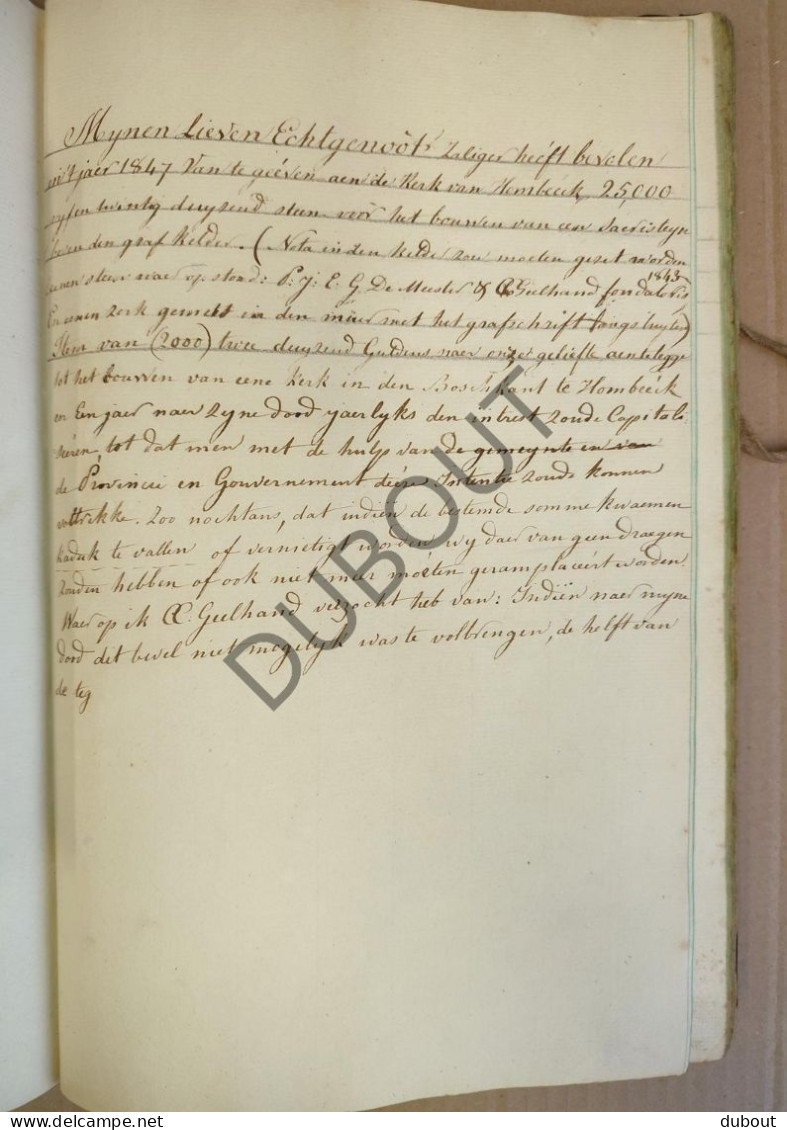 Mynen Lieven Echtgenoot zaliger heeft bevolen
in 't jaer 1847 Van te géeven aen de Kerk van Hombeeck, 25,000
vyf en twintig duyzend steen voor het bouwen van een Sacristeyn
boven den graf kelder. (Nota in den kelder zou moeten gezet worden
eenen steen waer op stond: P: J: E: G. De Meester & C. Geelhand fondatoris 1843
En eenen zerk gemetst in den muer met het grafschrift
Item van (2000) twee duyzend Guldens naer onze geliefte aenteleggen
tot het bouwen van eene Kerk in den Bosch kant te Hombeeck
en Een jaer naer Zyne dood jaerlyks den intrest zoude Capitali-
zéren, tot dat men met de hulp van de gemeynte en van
de Provincie en Gouvernement déeze Intentie zoude konnen
voltrekke. Zoo nochtans, dat indiën de bestemde somme kwaemen
kaduk te vallen of vernietigt worden wy daer van geen draegen
zouden hebben of ook niet meer moeten geramplaceért worden
Waer op ik C. Geelhand verzocht heb van: Indiën naer myne
dood dit bevel niet mogelyk was te volbrengen, de helft van
de teg
DUBOUT
dubout